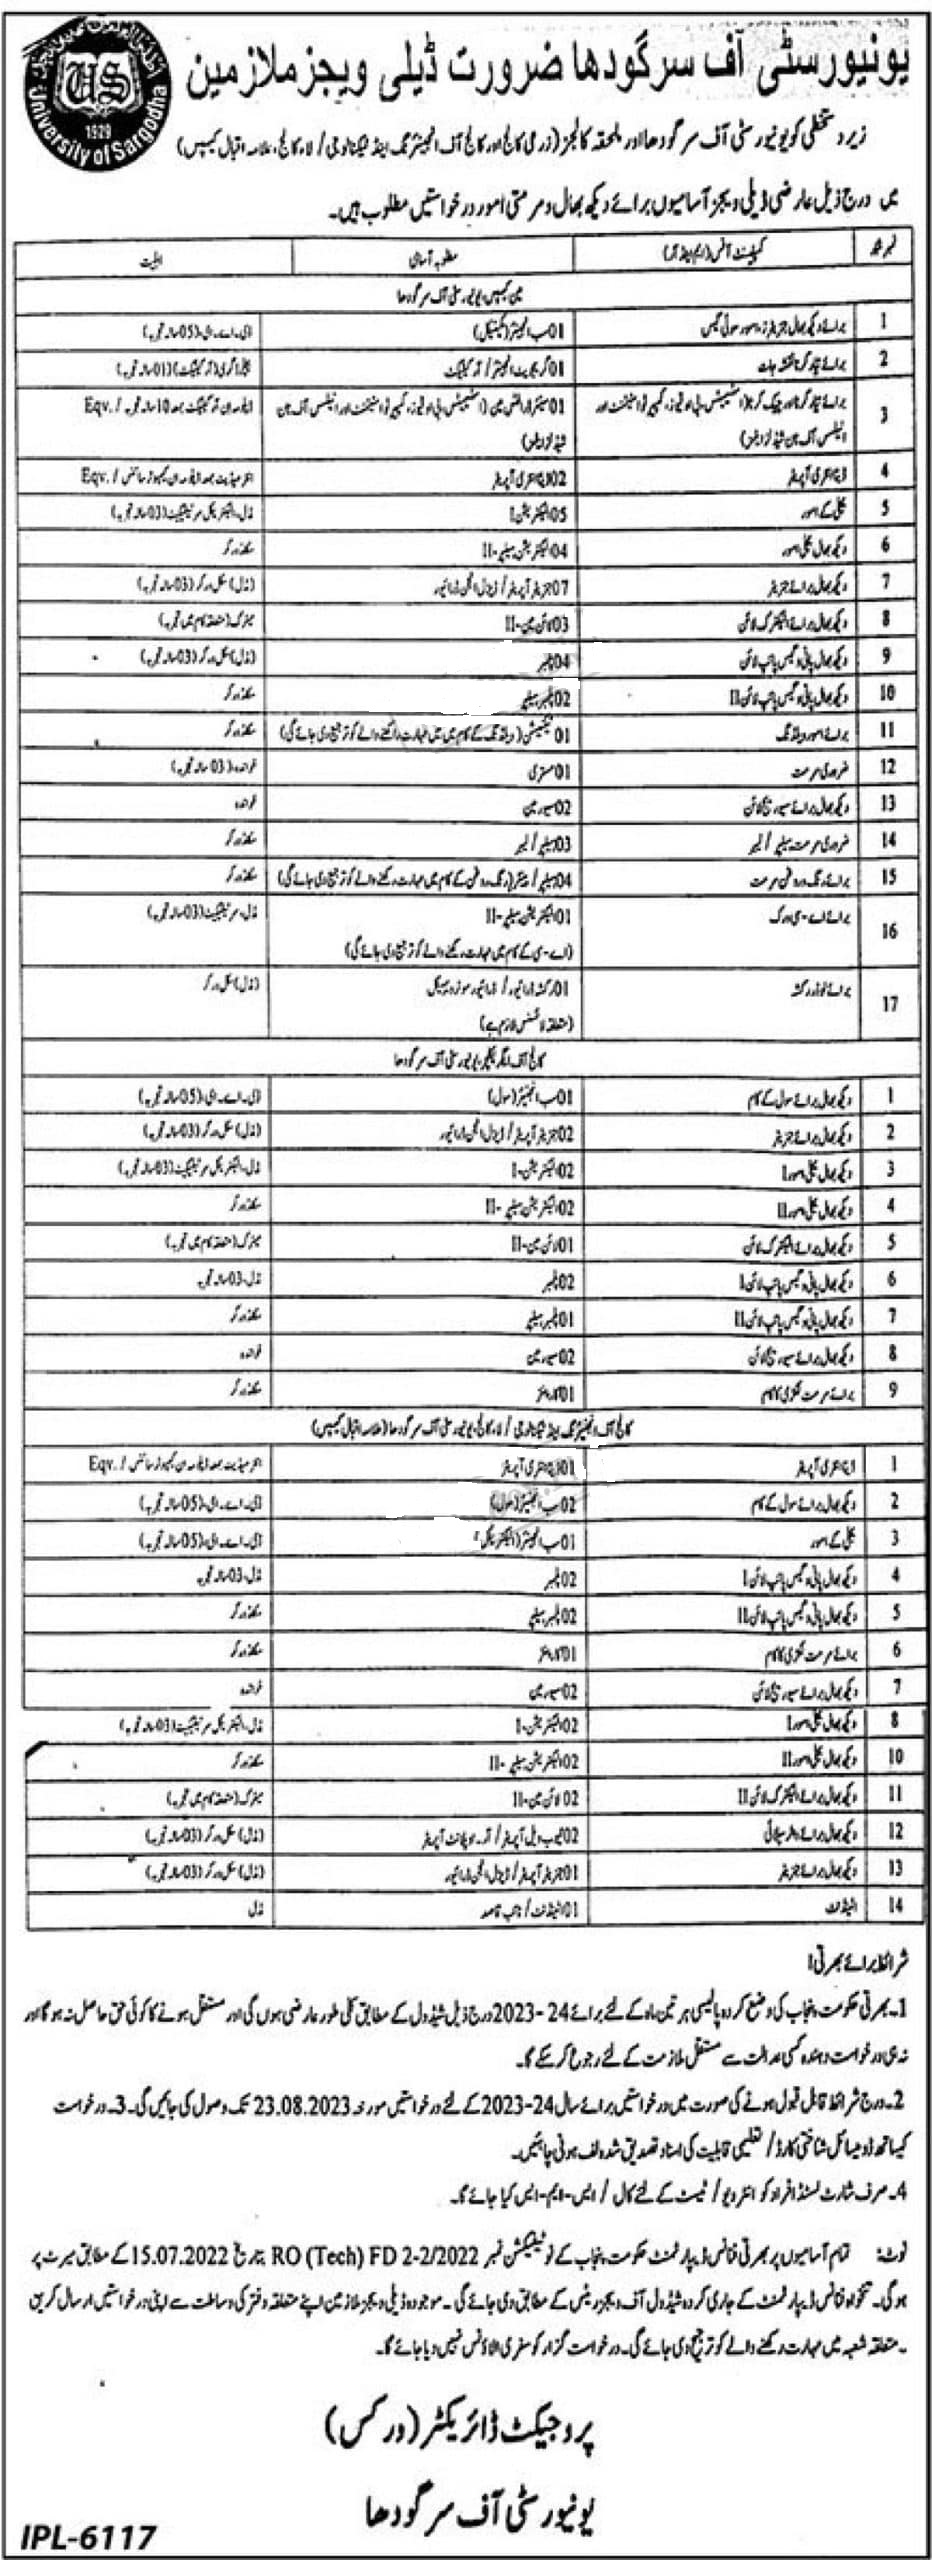 یونیورسٹی آف سرگودھا ضرورت ڈیلی ویجز ملازمین
University of Sargodha
US
1929
زیر دستخطی کو یونیورسٹی آف سرگودھا اور ملحقہ کالجز (زرعی کالج اور کالج آف انجینئرنگ اینڈ ٹیکنالوجی / لاء کالج، علامہ اقبال کیمپس)
میں درج ذیل عارضی ڈیلی ویجز آسامیوں برائے دیکھ بھال و مرمتی امور درخواستیں مطلوب ہیں۔
نمبر شمار کمپلینٹ آفس (ایم اینڈ آر) مطلوبہ آسامی اہلیت
مین کیمپس یونیورسٹی آف سرگودھا
1 برائے دیکھ بھال جنریٹرز، امور سوئی گیس 01 سب انجینئر (مکینیکل) ڈی۔اے۔ای (05 سالہ تجربہ)
2 برائے تیار کرنا نقشہ جات 01 گریجویٹ انجینئر / آرکیٹیکٹ بیچلر ڈگری (آرکیٹیکٹ) (01 سالہ تجربہ)
3 برائے تیار کرنا اور چیک کرنا (اسٹیمیٹس، بی او کیوز، کمپیریٹو اسٹیٹمنٹ اور
01 سینئر ڈرافٹس مین (اسٹیمیٹس، بی او کیوز، کمپیریٹو اسٹیٹمنٹ اور
ڈپلومہ ان آرکیٹیکٹ بمعہ 10 سالہ تجربہ / Eqv.
4 ڈیٹا انٹری آپریٹر 02 ڈیٹا انٹری آپریٹر انٹرمیڈیٹ بمعہ ڈپلومہ ان کمپیوٹر سائنس / Eqv.
5 بجلی کے امور 05 الیکٹریشن-I مڈل، الیکٹریکل سرٹیفکیٹ (03 سالہ تجربہ)
6 دیکھ بھال بجلی امور 04 الیکٹریشن ہیلپر-II سکلڈ ورکر
7 دیکھ بھال برائے جنریٹر 07 جنریٹر آپریٹر / ڈیزل انجن ڈرائیور (مڈل) سکل ورکر (03 سالہ تجربہ)
8 دیکھ بھال برائے الیکٹرک لائن 03 لائن مین-II میٹرک (متعلقہ کام میں تجربہ)
9 دیکھ بھال پانی و گیس پائپ لائن 04 پلمبر (مڈل) سکل ورکر (03 سالہ تجربہ)
10 دیکھ بھال پانی و گیس پائپ لائن II 02 پلمبر ہیلپر سکلڈ ورکر
11 برائے امور ویلڈنگ 01 ٹیکنیشن (ویلڈنگ کے کام میں میں مہارت رکھنے والے کو ترجیح دی جائے گی) سکلڈ ورکر
12 ضروری مرمت 01 مستری خواندہ (03 سالہ تجربہ)
13 دیکھ بھال برائے سیوریج لائن 02 سیور مین خواندہ
14 ضروری مرمت ہیلپر / لیبر 03 ہیلپر / لیبر سکلڈ ورکر
15 برائے رنگ و روغن مرمت 04 ہیلپر / پینٹر (رنگ روغن کے کام میں مہارت رکھنے والے کو ترجیح دی جائے گی) سکلڈ ورکر
16 برائے اے-سی ورک 01 الیکٹریشن ہیلپر-II مڈل، سرٹیفکیٹ (03 سالہ تجربہ)
(اے-سی کے کام میں مہارت رکھنے والے کو ترجیح دی جائے گی)
17 برائے لوڈر رکشہ 01 رکشہ ڈرائیور / ڈرائیور موٹر وہیکل (مڈل) سکل ورکر
(متعلقہ لائسنس لازم ہے)
کالج آف ایگریکلچر، یونیورسٹی آف سرگودھا
1 دیکھ بھال برائے سول کے کام 01 سب انجینئر (سول) ڈی۔اے۔ای (05 سالہ تجربہ)
2 دیکھ بھال برائے جنریٹر 02 جنریٹر آپریٹر / ڈیزل انجن ڈرائیور (مڈل) سکل ورکر (03 سالہ تجربہ)
3 دیکھ بھال بجلی امور I 02 الیکٹریشن-I مڈل، الیکٹریکل سرٹیفکیٹ (03 سالہ تجربہ)
4 دیکھ بھال بجلی امور II 02 الیکٹریشن ہیلپر-II سکلڈ ورکر
5 دیکھ بھال برائے الیکٹرک لائن 01 لائن مین-II میٹرک (متعلقہ کام میں تجربہ)
6 دیکھ بھال پانی و گیس پائپ لائن I 02 پلمبر مڈل، 03 سالہ تجربہ
7 دیکھ بھال پانی و گیس پائپ لائن II 01 پلمبر ہیلپر سکلڈ ورکر
8 دیکھ بھال برائے سیوریج لائن 02 سیور مین خواندہ
9 برائے مرمت لکڑی کا کام 01 کارپینٹر سکلڈ ورکر
کالج آف انجینئرنگ اینڈ ٹیکنالوجی / لاء کالج، یونیورسٹی آف سرگودھا (علامہ اقبال کیمپس)
1 ڈیٹا انٹری آپریٹر 01 ڈیٹا انٹری آپریٹر انٹرمیڈیٹ بمعہ ڈپلومہ ان کمپیوٹر سائنس / Eqv.
2 دیکھ بھال برائے سول کے کام 02 سب انجینئر (سول) ڈی۔اے۔ای (05 سالہ تجربہ)
3 بجلی کے امور 01 سب انجینئر (الیکٹریکل) ڈی۔اے۔ای (05 سالہ تجربہ)
4 دیکھ بھال پانی و گیس پائپ لائن I 02 پلمبر مڈل، 03 سالہ تجربہ
5 دیکھ بھال پانی و گیس پائپ لائن II 02 پلمبر ہیلپر سکلڈ ورکر
6 برائے مرمت لکڑی کا کام 01 کارپینٹر سکلڈ ورکر
7 دیکھ بھال برائے سیوریج لائن 02 سیور مین خواندہ
8 دیکھ بھال بجلی امور I 02 الیکٹریشن-I مڈل، الیکٹریکل سرٹیفکیٹ (03 سالہ تجربہ)
10 دیکھ بھال بجلی امور II 02 الیکٹریشن ہیلپر-II سکلڈ ورکر
11 دیکھ بھال برائے الیکٹرک لائن II 02 لائن مین-II میٹرک (متعلقہ کام میں تجربہ)
12 دیکھ بھال برائے واٹر سپلائی 02 ٹیوب ویل آپریٹر / آر۔او پلانٹ آپریٹر (مڈل) سکل ورکر (03 سالہ تجربہ)
13 دیکھ بھال برائے جنریٹر 01 جنریٹر آپریٹر / ڈیزل انجن ڈرائیور (مڈل) سکل ورکر (03 سالہ تجربہ)
14 اٹینڈنٹ 01 اٹینڈنٹ / نائب قاصد مڈل
شرائط برائے بھرتی:
1۔ بھرتی حکومت پنجاب کی وضع کردہ پالیسی ہر تین ماہ کے لئے برائے 24-2023 درج ذیل شیڈول کے مطابق کلی طور عارضی ہوں گی اور مستقل ہونے کا کوئی حق حاصل نہ ہوگا اور
نہ ہی درخواست دہندہ کسی عدالت سے مستقل ملازمت کے لئے رجوع کر سکے گا۔
2۔ درج شرائط قابل قبول ہونے کی صورت میں درخواستیں برائے سال 24-2023 کے لئے درخواستیں مورخہ 23.08.2023 تک وصول کی جائیں گی۔ 3۔ درخواست
کیساتھ ڈومیسائل شناختی کارڈ / تعلیمی قابلیت کی اسناد تصدیق شدہ لف ہونی چاہئیں۔
4۔ صرف شارٹ لسٹڈ افراد کو انٹرویو / ٹیسٹ کے لئے کال / ایس-ایم-ایس کیا جائے گا۔
نوٹ: تمام آسامیوں پر بھرتی فنانس ڈیپارٹمنٹ حکومت پنجاب کے نوٹیفکیشن نمبر RO (Tech) FD 2-2/2022 بتاریخ 15.07.2022 کے مطابق میرٹ پر
ہوگی۔ تنخواہ فنانس ڈیپارٹمنٹ کے جاری کردہ شیڈول آف ویجز ریٹس کے مطابق دی جائے گی۔ موجودہ ڈیلی ویجز ملازمین اپنے متعلقہ دفتر کی وساطت سے اپنی درخواستیں ارسال کریں
۔ متعلقہ شعبہ میں مہارت رکھنے والے کو ترجیح دی جائے گی۔ درخواست گزار کو سفری الاؤنس نہیں دیا جائے گا۔
پروجیکٹ ڈائریکٹر (ورکس)
یونیورسٹی آف سرگودھا
IPL-6117